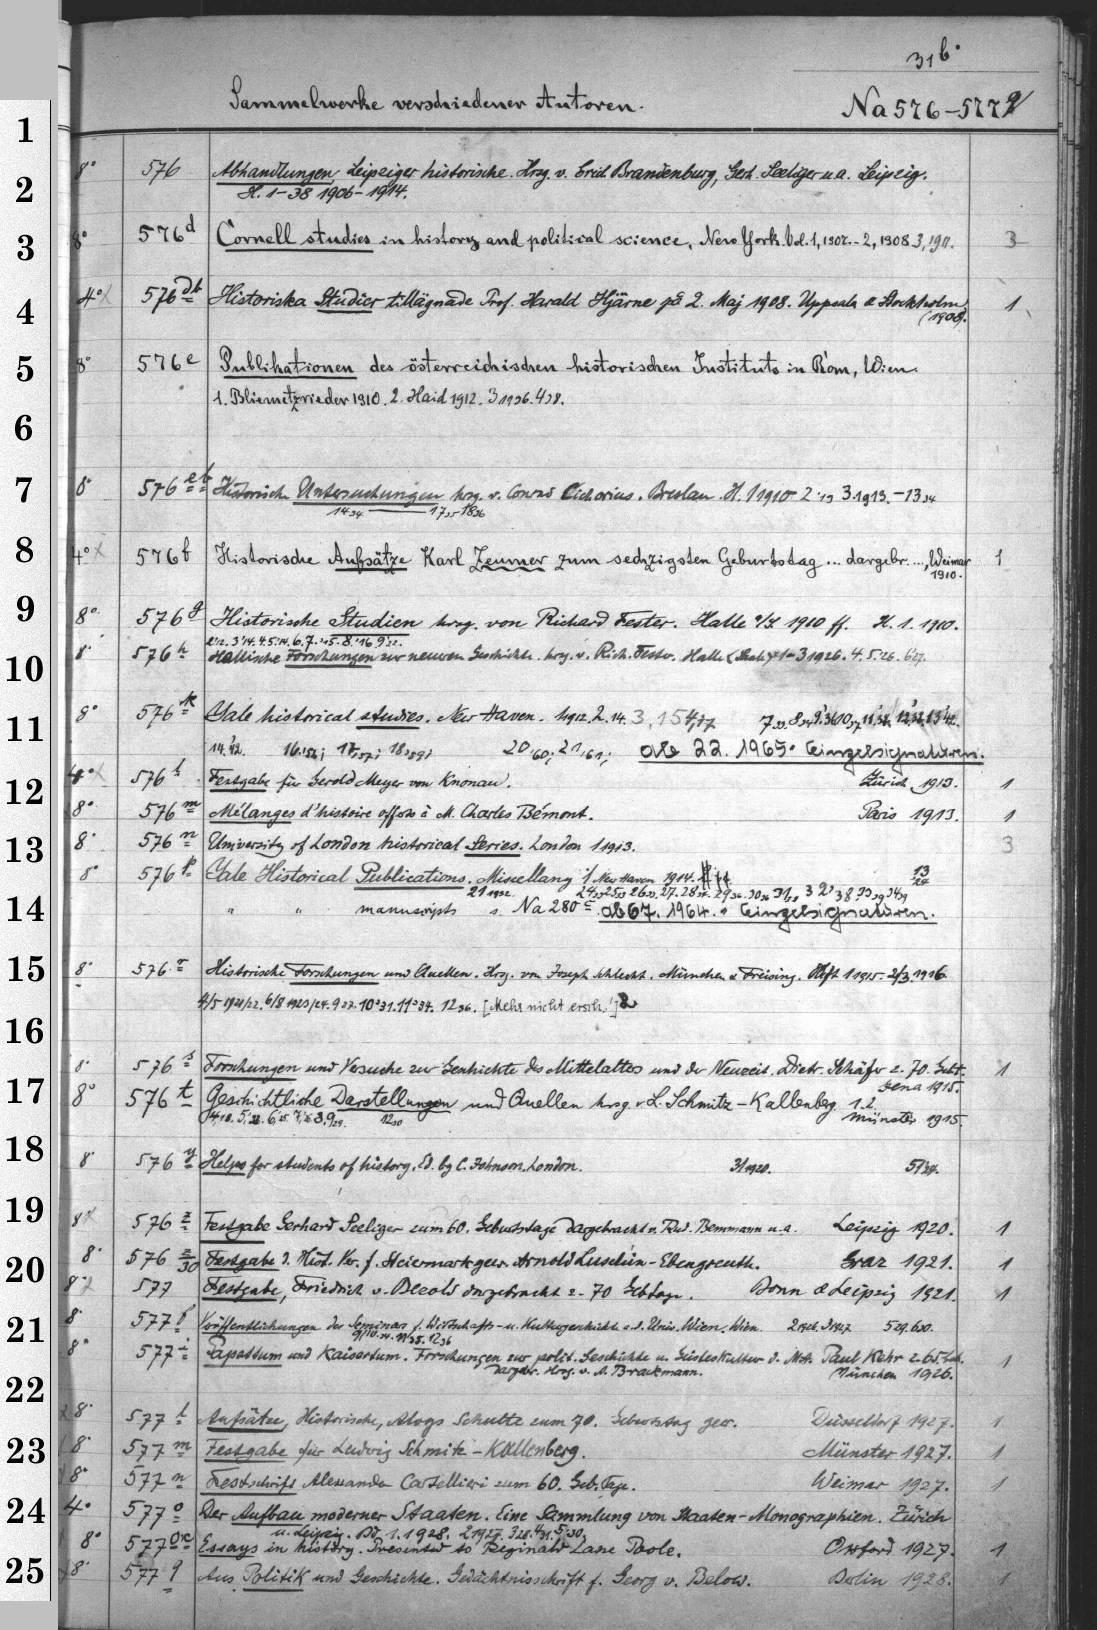 31 b.
Sammelwerke verschiedener Autoren.
Na 576–577q
8° 576 Abhandlungen Leipziger historische. Hrsg. v. Erich Brandenburg, Gerh. Seeliger u. a. Leipzig.
H. 1–38 1906–1914.
8° 576d Cornell studies in history and political science. New York. Vol. 1, 1907.–2, 1908 3, 1911. 3
4° 576db Historiska Studier tillägnade Prof. Harald Hjärne på 2. Maj 1908. Uppsala & Stockholm 1
(1908).
8° 576e Publikationen des österreichischen historischen Instituts in Rom, Wien.
1. Bliemetzrieder 1910. 2. Haid 1912. 3 1936. 4 38.
8° 576eb Historische Untersuchungen hrsg. v. Conrad Cichorius. Breslau. H. 1 1910– 2 '13 3. 1913. –13 34
14 34 — 17 35 18 36
4° 576f Historische Aufsätze Karl Zeumer zum sechzigsten Geburtstag ... dargebr. ..., Weimar 1
1910.
8° 576g Historische Studien hrsg. von Richard Fester. Halle a/S 1910 ff. H. 1. 1910.
8° 576h Hallische Forschungen zur neueren Geschichte. hrsg. v. Rich. Fester. Halle (Saale) 1–3 1926. 4. 5. 26. 6 27.
8° 576k Yale historical studies. New Haven. 1 1912. 2. 14. 3, 15 4, 17
14. '42. 16. '52; 17, '57; 18, '59; 20, '60; 21, '61; ab 22. 1965. Einzelsignaturen.
4° 576l Festgabe für Gerold Meyer von Knonau. Zürich 1913. 1
8° 576m Mélanges d'histoire offerts à M. Charles Bémont. Paris 1913. 1
8° 576n University of London historical Series. London 1 1913. 3
8° 576p Yale Historical Publications. Miscellany 1 New Haven 1914.
21 1932. 24 33 25 33 26 33 27. 28
" " manuscripts s. Na 280c ab 67. 1964. Einzelsignaturen.
8° 576r Historische Forschungen und Quellen. Hrsg. von Joseph Schlecht. München u. Freising. Heft 1 1915. 2/3. 1916.
4/5 1921/22. 6/8 1923/24. 9 27. 10 31. 11 34. 12 36. [Mehr nicht ersch.!]
8° 576s Forschungen und Versuche zur Geschichte des Mittelalters und der Neuzeit. Dietr. Schäfer z. 70. Gebt. 1
Jena 1915.
8° 576t Geschichtliche Darstellungen und Quellen hrsg. v. L. Schmitz–Kallenberg. 1. 2.
Münster 1915.
12 30
8° 576y Helps for students of history. Ed. by C. Johnson. London. 31 1920. 51 '24.
8° 576z Festgabe Gerhard Seeliger zum 60. Geburtstage dargebracht v. Rud. Bemmann u. a. Leipzig 1920. 1
8° 576z/30 Festgabe d. Hist. Ver. f. Steiermark gew. Arnold Luschin–Ebengreuth. Graz 1921. 1
8° 577 Festgabe, Friedrich v. Bezold dargebracht z. 70 Gebtage. Bonn & Leipzig 1921. 1
8° 577f Veröffentlichungen des Seminars f. Wirtschafts- u. Kulturgeschichte a. d. Univ. Wien. Wien. 2 1926. 3 1927 5 29. 6 30.
9/10. 34. 11 35. 12 36
8° 577i Papsttum und Kaisertum. Forschungen zur polit. Geschichte u. Geisteskultur d. Mit. Paul Kehr z. 65. Geb. 1
dargebr. Hrsg. v. A. Brackmann. München 1926.
8° 577l Aufsätze, Historische, Aloys Schulte zum 70. Geburtstag gew. Düsseldorf 1927. 1
8° 577m Festgabe für Ludwig Schmitz–Kallenberg. Münster 1927. 1
8° 577n Festschrift Alexander Cartellieri zum 60. Geb. Tage. Weimar 1927. 1
4° 577o Der Aufbau moderner Staaten. Eine Sammlung von Staaten–Monographien. Zürich
u. Leipzig. Bd. 1. 1928. 2 1927. 3 28. 4 31. 5 30.
8° 577oe Essays in history. Presented to Reginald Lane Poole. Oxford 1927. 1
8° 577q Aus Politik und Geschichte. Gedächtnisschrift f. Georg v. Below. Berlin 1928. 1
1
2
3
4
5
6
7
8
9
10
11
12
13
14
15
16
17
18
19
20
21
22
23
24
25